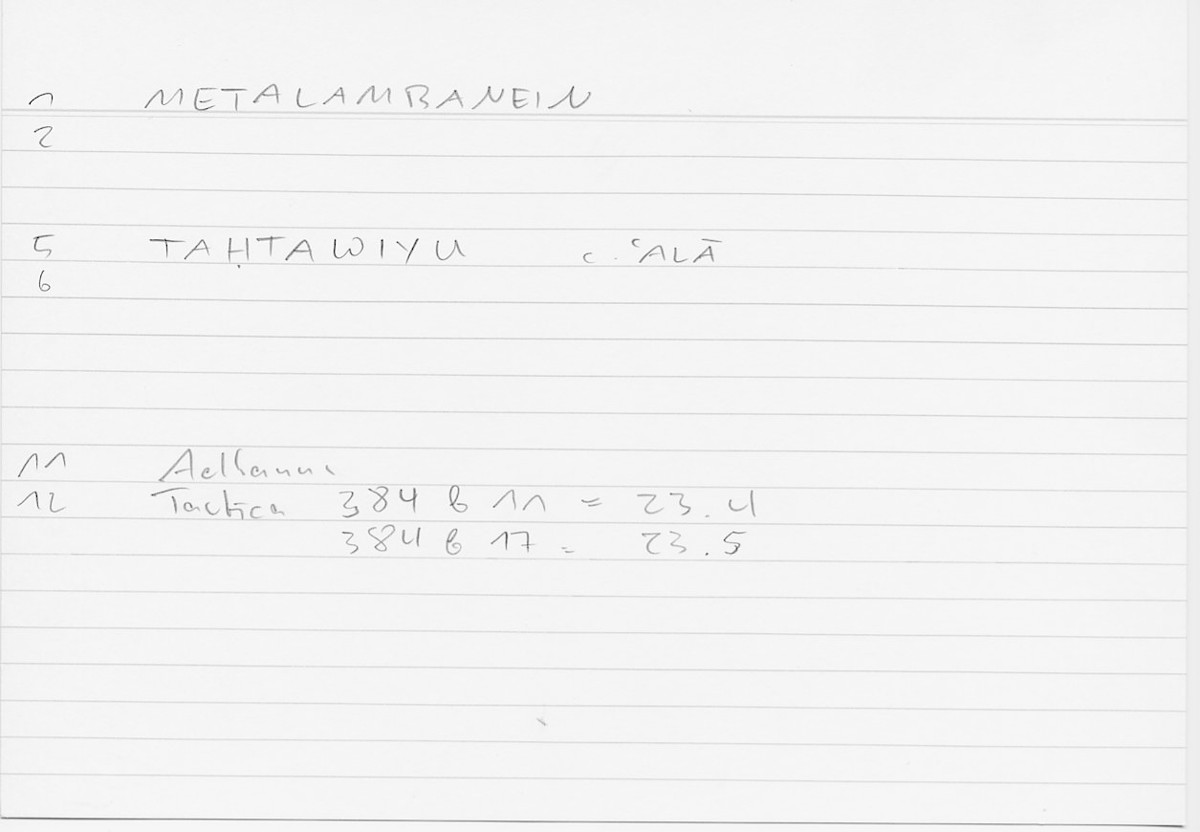 1 METALAMBANEIN
2
5 TAḤTAWIYU c. ʿALĀ
6
11 Aelianus
12 Tactica 384 b 11 = 23.4
384 b 17 = 23.5